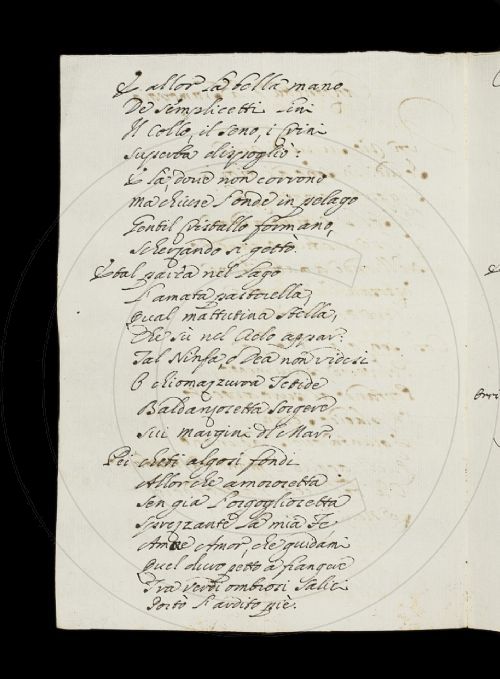 E allor la bella mano
De semplicetti lini
Il Collo, il seno, i crini
superba dispogliò:
E là, dove non corrono
ma chiuse l'onde in pelago
Gentil Cristallo formano,
scherzando si gettò.
E tal parea nel Lago
L'amata pastorella,
Qual mattutina stella,
Che sù nel Cielo appar:
Tal Ninfa, o Dea non videsi
O chiomazzurra Tetide
Baldanzosetta sorgere
sui margini del Mar.
Pei cheti algosi fondi
Allor che amorosetta
sen gia l'orgogliosetta
sprezzante la mia Fe
Amor, che guidami
Quel duro petto a frangere
Tra verdi ombrosi salici
Portò l'ardito piè.